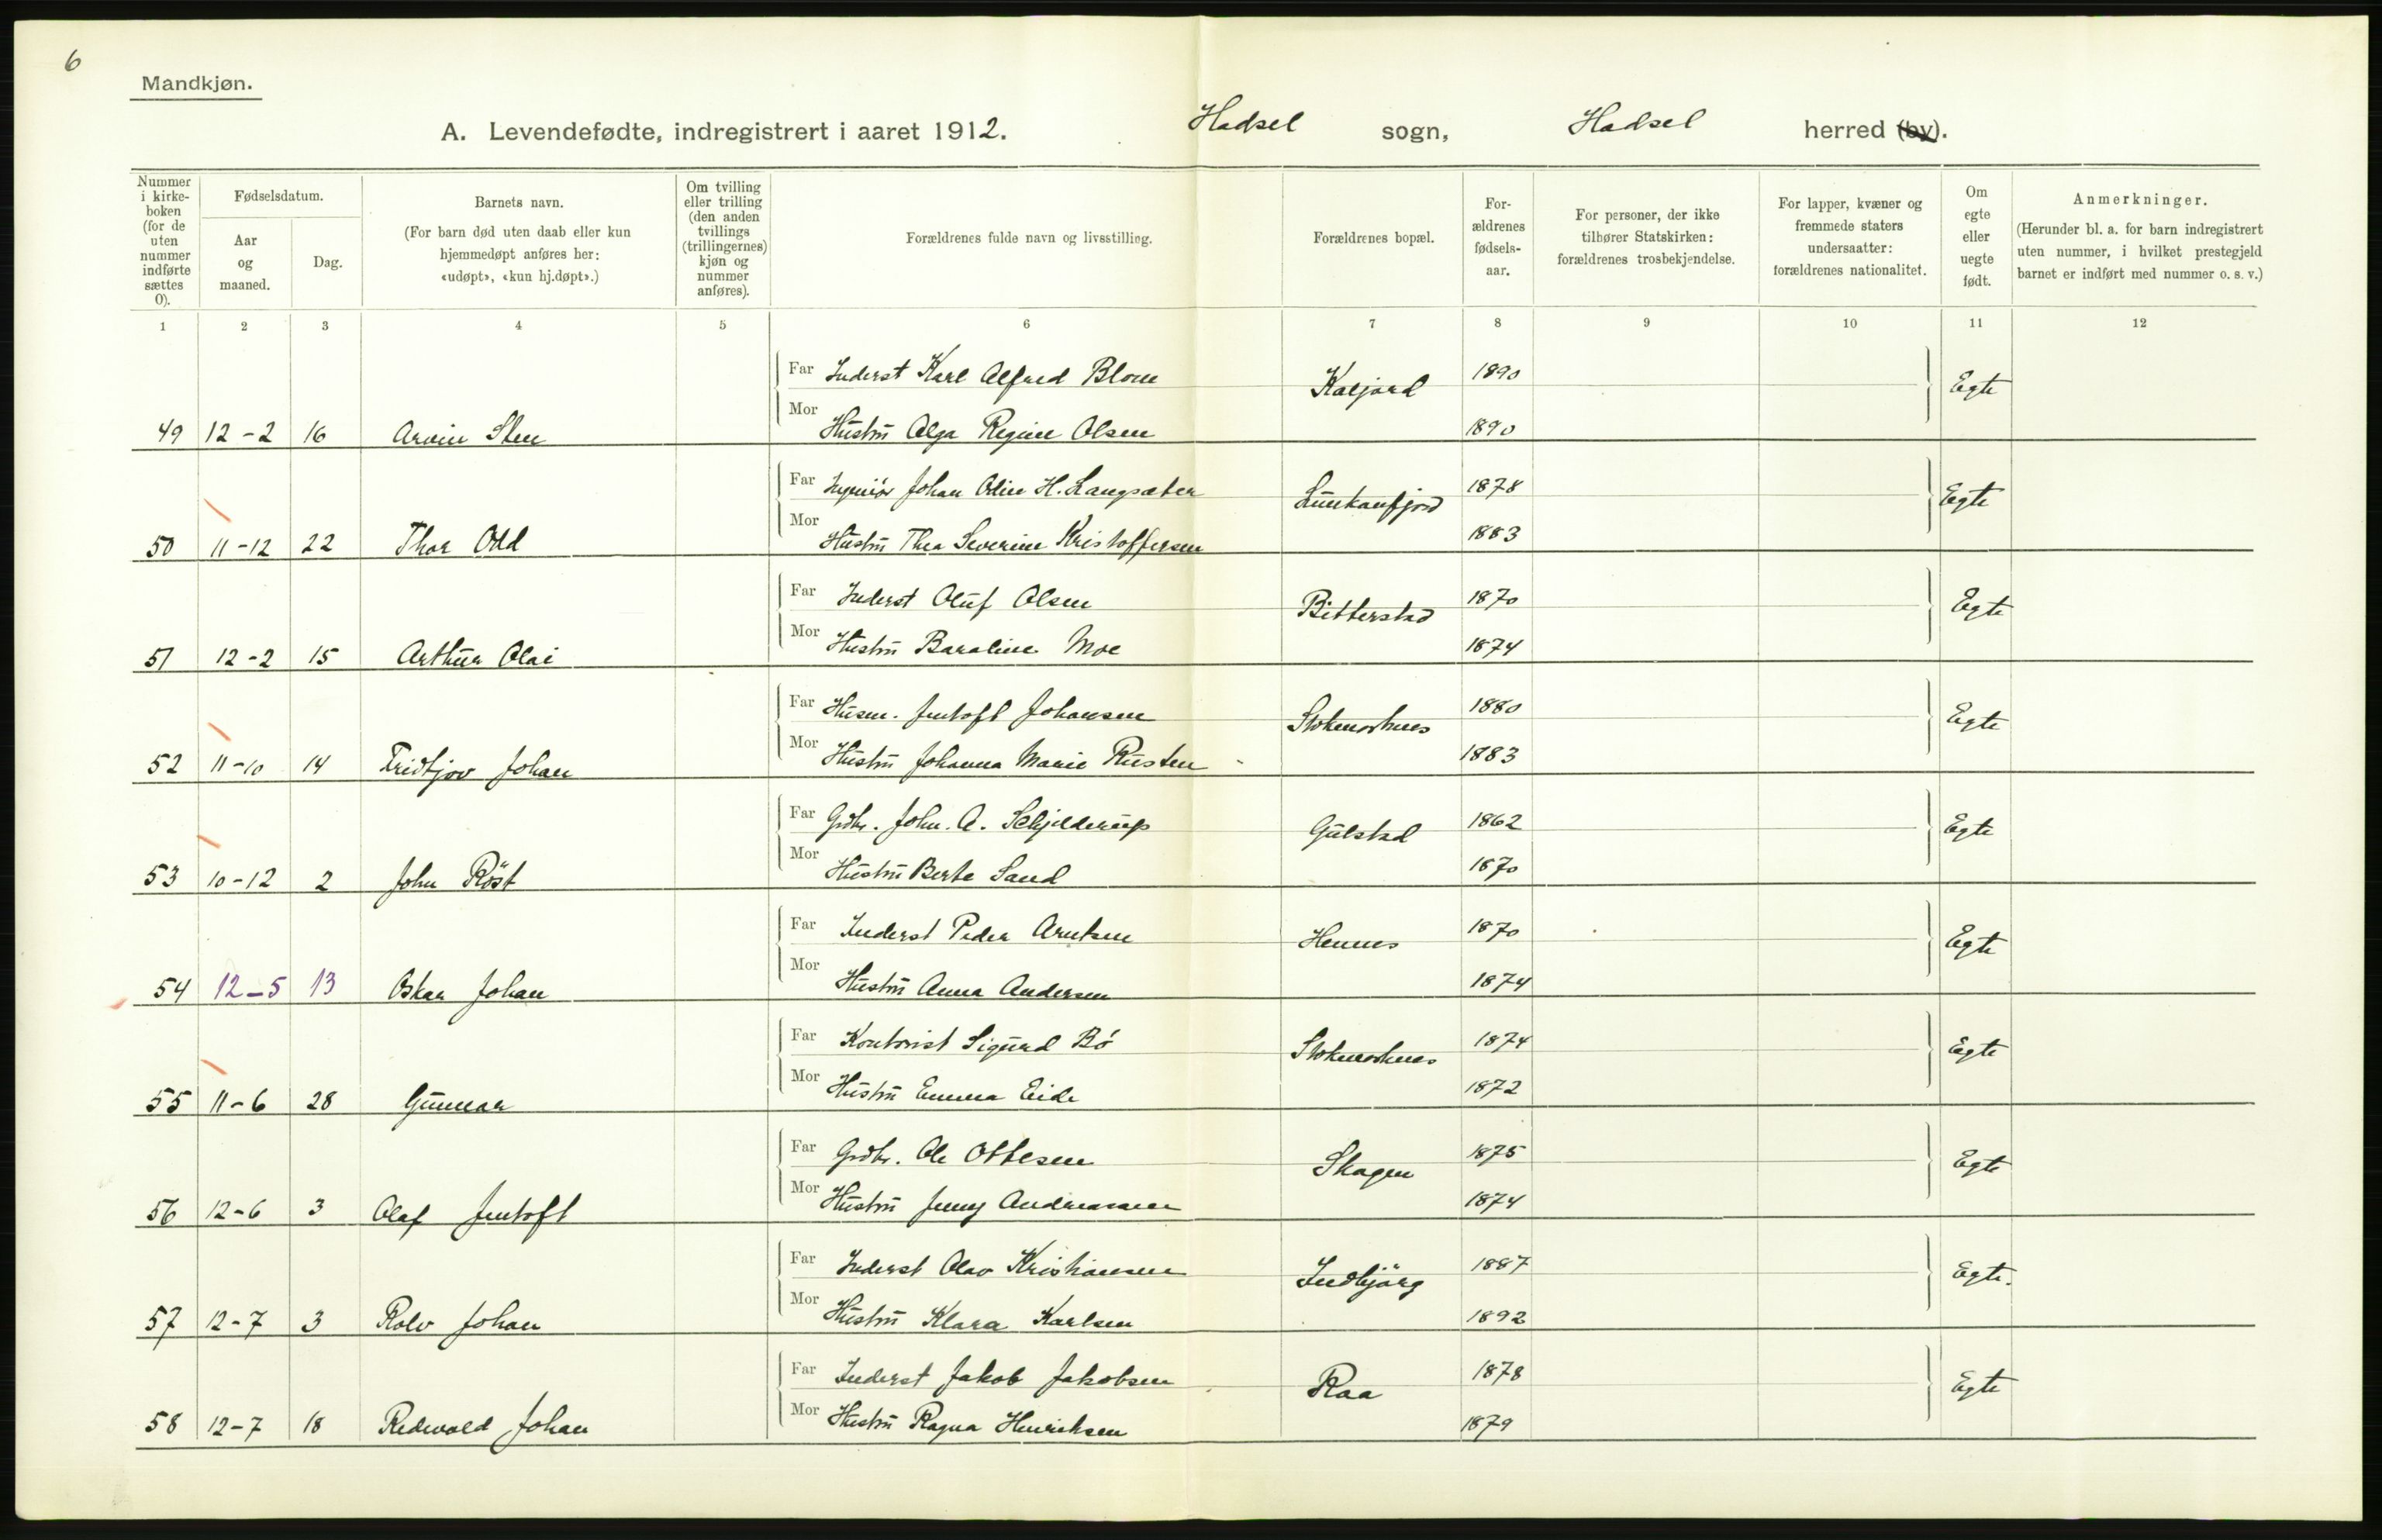 6
Mandkjøn.
A. Levendefødte, indregistrert i aaret 1912. Hadsel sogn, Hadsel herred (by).
Nummer i kirke-boken (for de uten nummer indførte sættes 0).
Fødselsdatum.
Aar og maaned.
Dag.
Barnets navn.
(For barn død uten daab eller kun
hjemmedøpt anføres her:
«udøpt», «kun hj.døpt».)
Om tvilling
eller trilling
(den anden
tvillings
(trillingernes)
kjøn og
nummer
anføres).
Forældrenes fulde navn og livsstilling.
Forældrenes bopæl.
For-
ældrenes
fødsels-
aar.
For personer, der ikke
tilhører Statskirken:
forældrenes trosbekjendelse.
For lapper, kvæner og
fremmede staters
undersaatter:
forældrenes nationalitet.
Om
egte
eller
uegte
født.
Anmerkninger.
(Herunder bl. a. for barn indregistrert
uten nummer, i hvilket prestegjeld
barnet er indført med nummer o. s. v.)
1 2 3 4 5 6 7 8 9 10 11 12
Far Inderst Karl Alfred Blom Kaljord 1890 Egte
49 12-2 16 Arvin Sten Mor Hustru Alga Regine Olsen 1890
Far Ingeniør Johan Odin H. Langsæter 1878 Egte
50 11-12 22 Thor Odd Mor Hustru Thea Severine Kristoffersen 1883
Far Inderst Oluf Olsen Bitterstad 1870 Egte
51 12-2 15 Arthur Olai Mor Hustru Baroline Moe 1874
Far Husm. Jentoft Johansen Stokmarknes 1880 Egte
52 11-10 14 Fridtjov Johan Mor Hustru Johanna Marie Rusten 1883
Far Grdbr. John. A. Schjelderup Gulstad 1862 Egte
53 10-12 2 John Röst Mor Hustru Berte Sand 1870
Far Inderst Peder Arntsen Hennes 1870 Egte
54 12-5 13 Oskar Johan Mor Hustru Anna Andersen 1874
Far Kontorist Sigurd Bö Stokmarknes 1874 Egte
55 11-6 28 Gunnar Mor Hustru Emma Eide 1872
Far Grdbr. Ole Ottesen Skagen 1875 Egte
56 12-6 3 Olaf Jentoft Mor Hustru Jenny Andreassen 1874
Far Inderst Olav Kristiansen 1887 Egte.
57 12-7 3 Rolv Johan Mor Hustru Klara Karlsen 1892
Far Inderst Jakob Jakobsen Raa 1878 Egte
58 12-7 18 Redvald Johan Mor Hustru Ragna Henriksen 1879